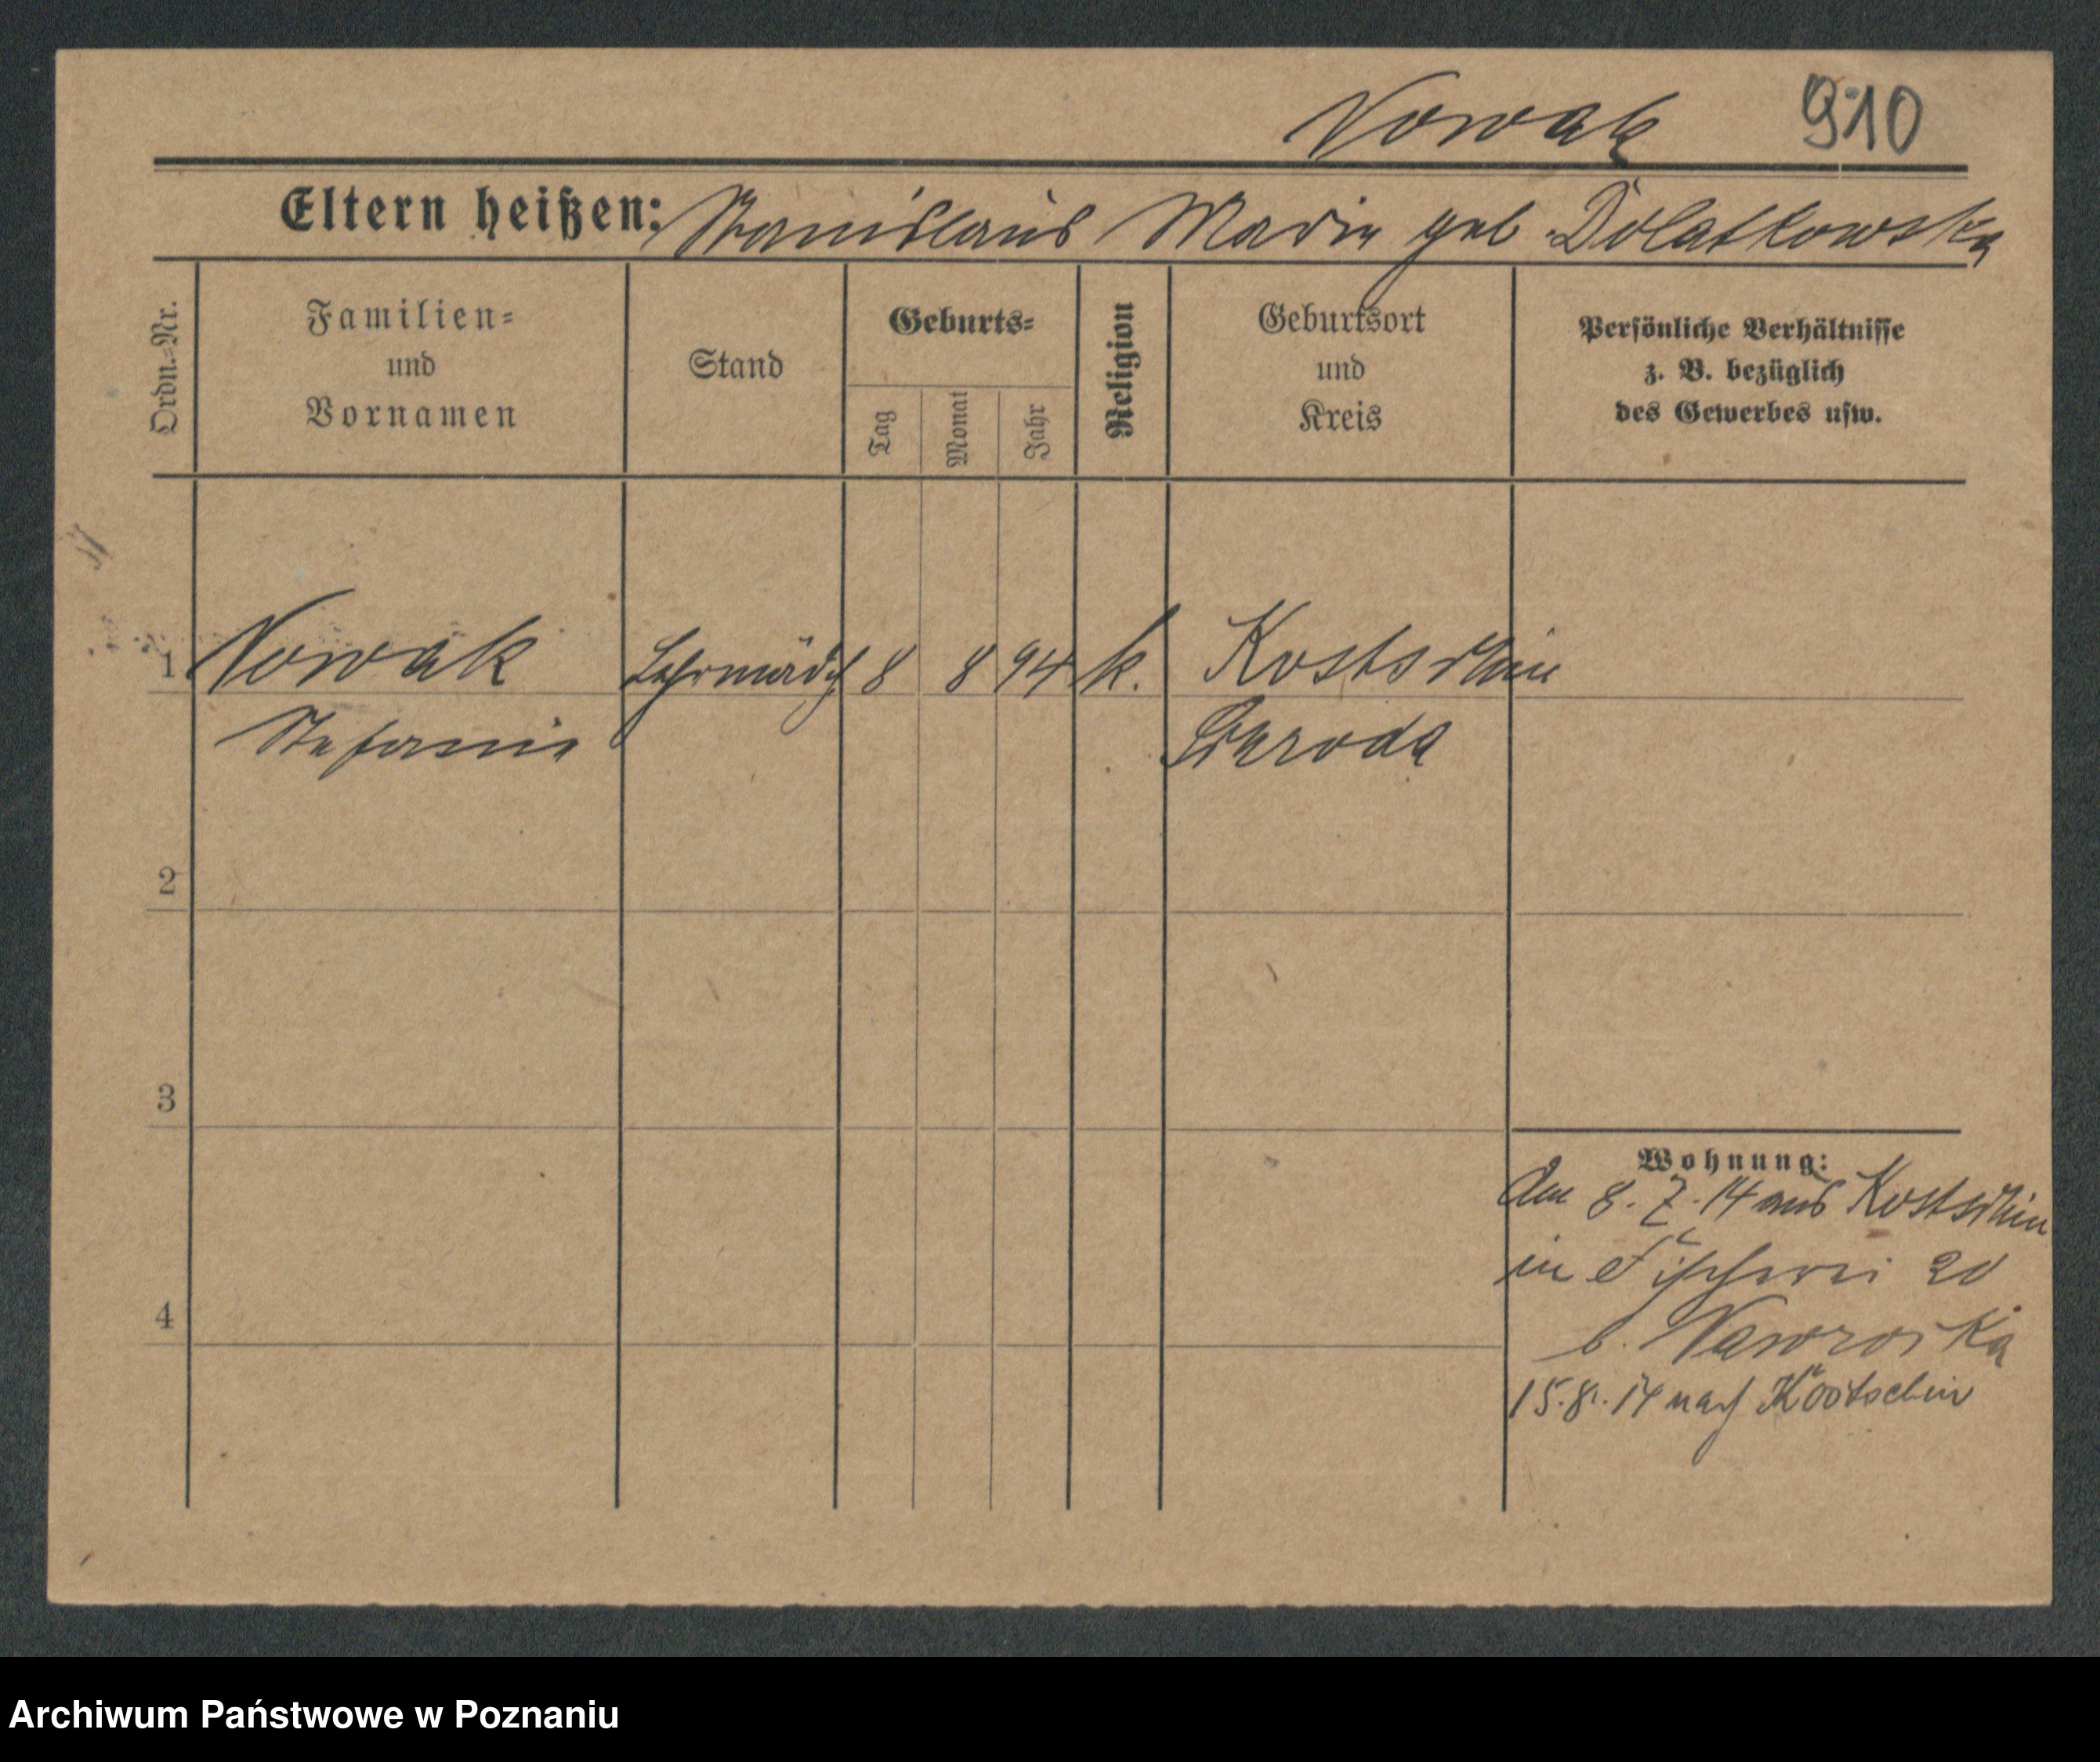 Nowak 910
Eltern heißen: Stanislaus Marie geb. Dolatkowska
Ordn.-Nr.
Familien-
und
Vornamen
Stand
Geburts-
Tag
Monat
Jahr
Religion
Geburtsort
und
Kreis
Persönliche Verhältnisse
z. B. bezüglich
des Gewerbes usw.
1 Nowak Lehrmädch. 8 8 94 k. Kostschin
Stefanie Schroda
2
3
4
Wohnung:
Am 8. 7. 14 aus Kostschin
in Fischerei 20
b. Nawroska
15.8.14 nach Kostschin
Archiwum Państwowe w Poznaniu